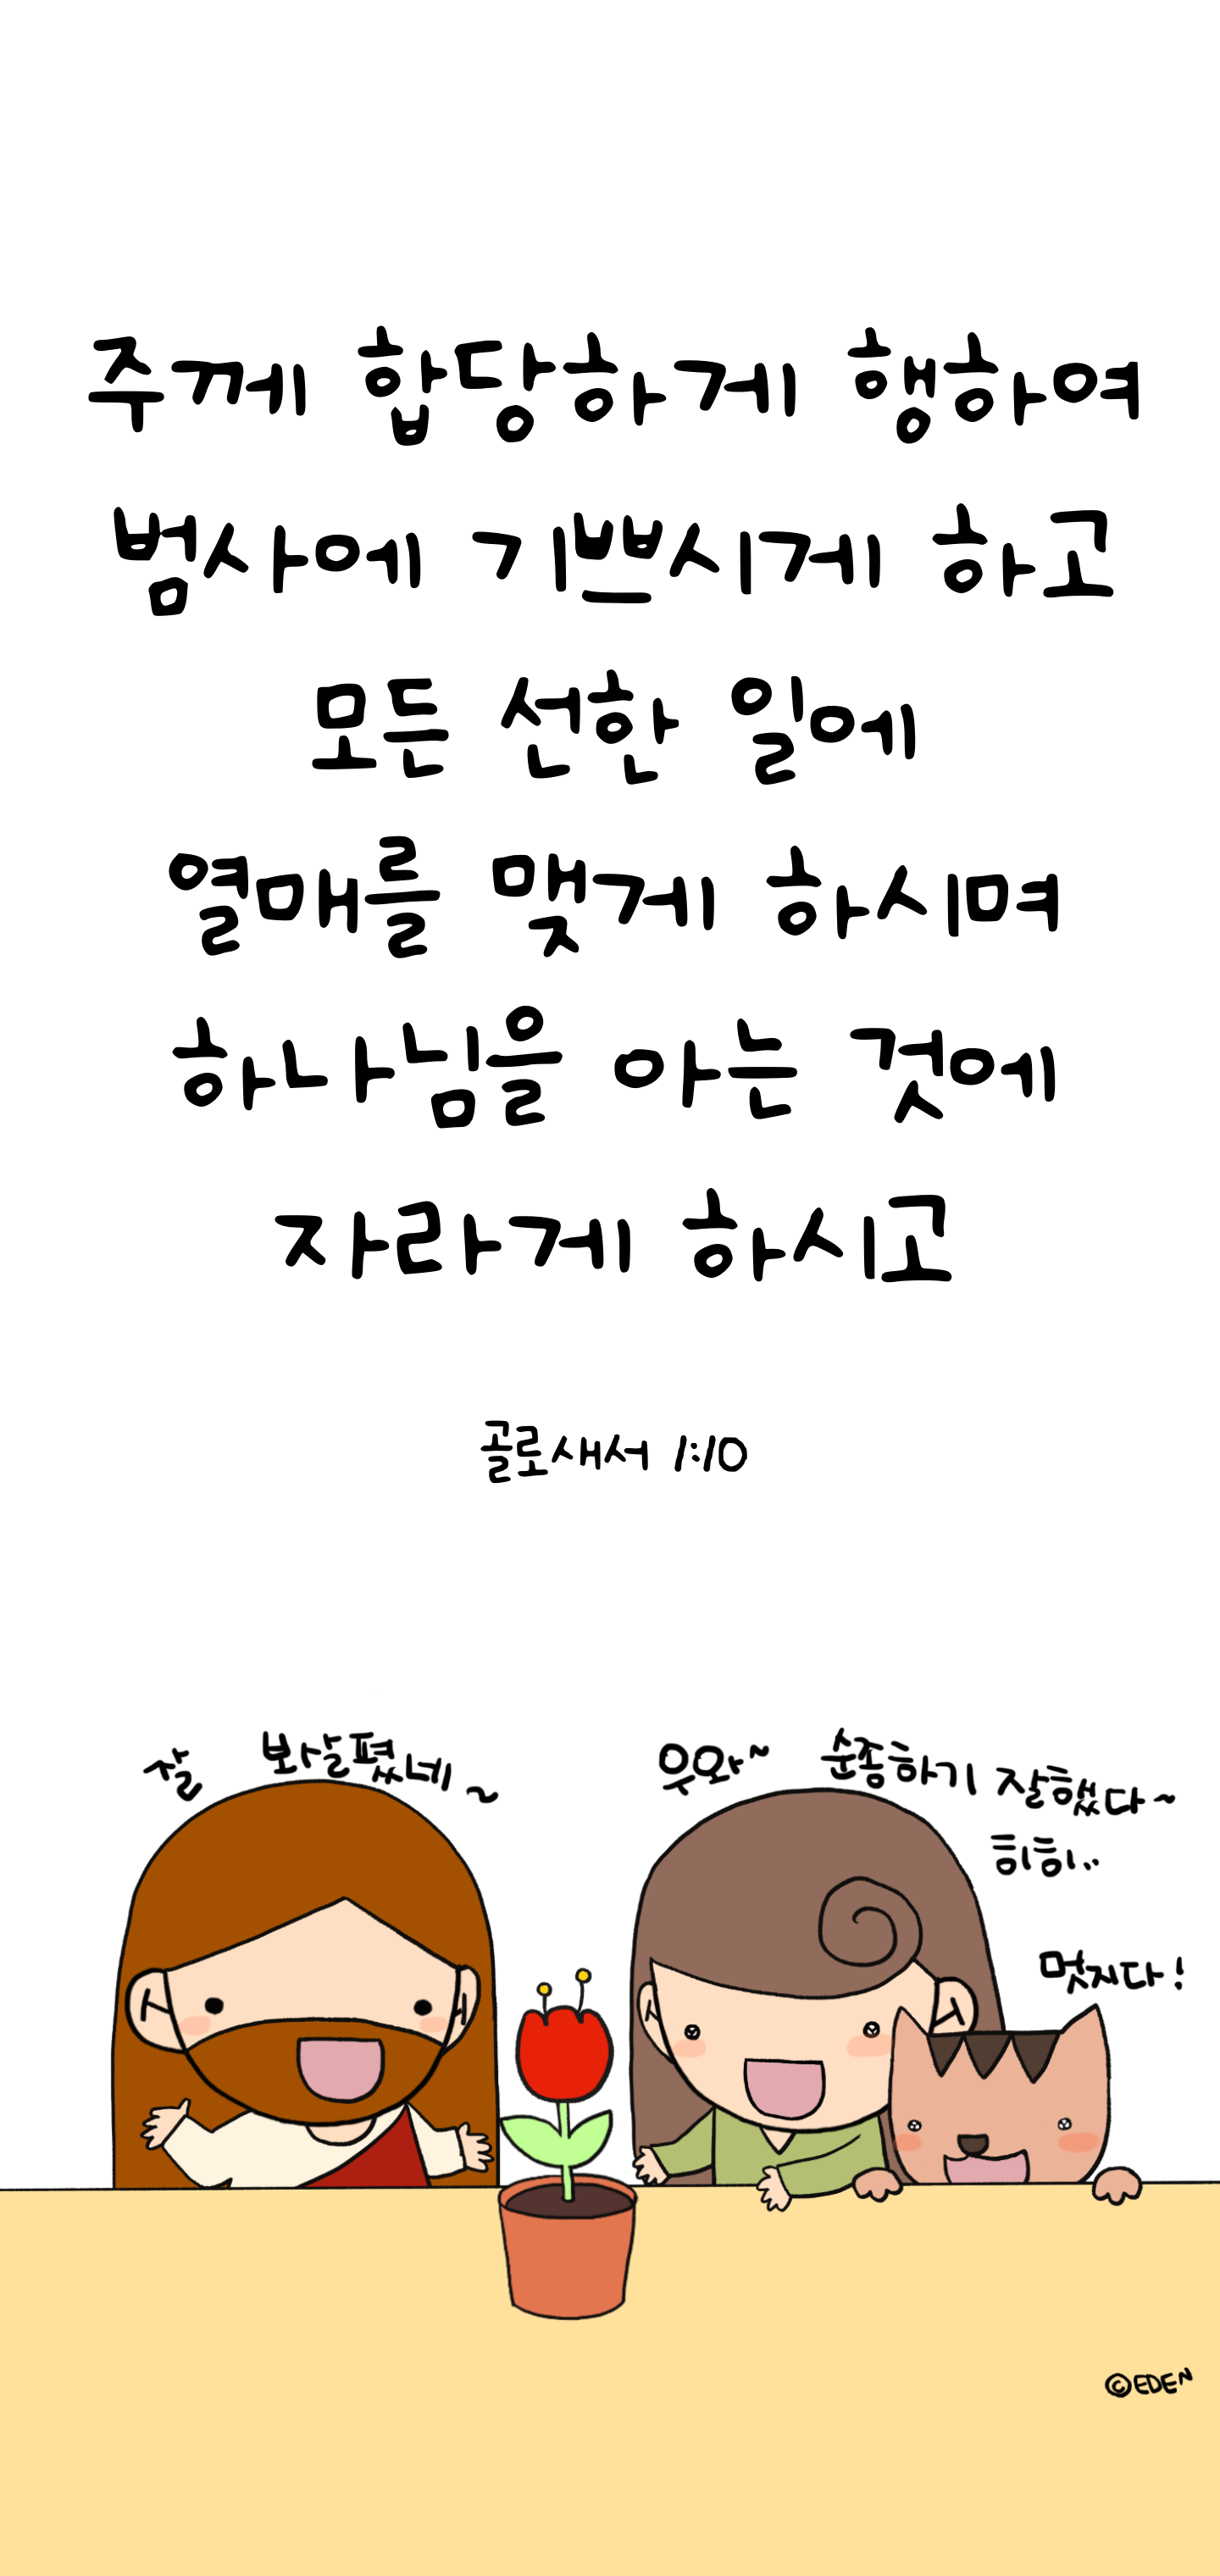 주께 합당하게 행하여
범사에 기쁘시게 하고
모든 선한 일에
열매를 맺게 하시며
하나님을 아는 것에
자라게 하시고
골로새서 1:10
잘 보살폈네~
우와~ 순종하기 잘했다~
히히..
멋지다!
©EDEN